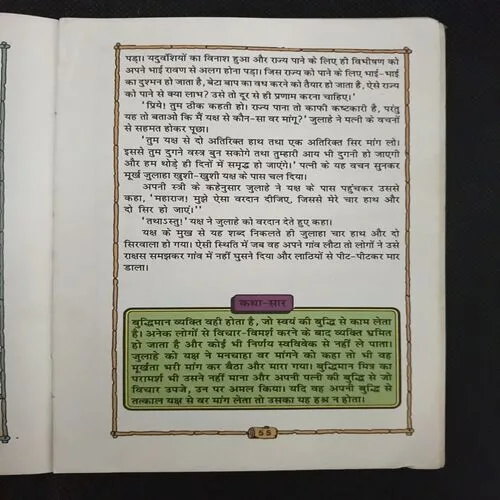 पड़ा। यदुवंशियों का विनाश हुआ और राज्य पाने के लिए ही विभीषण को
अपने भाई रावण से अलग होना पड़ा। जिस राज्य को पाने के लिए भाई-भाई
का दुश्मन हो जाता है, बेटा बाप का वध करने को तैयार हो जाता है, ऐसे राज्य
को पाने से क्या लाभ? उसे तो दूर से ही प्रणाम करना चाहिए।'
'प्रिये! तुम ठीक कहती हो। राज्य पाना तो काफी कष्टकारी है, परंतु
यह तो बताओ कि मैं यक्ष से कौन-सा वर मांगू?' जुलाहे ने पत्नी के वचनों
से सहमत होकर पूछा।
'तुम यक्ष से दो अतिरिक्त हाथ तथा एक अतिरिक्त सिर मांग लो।
इससे तुम दुगने वस्त्र बुन सकोगे तथा तुम्हारी आय भी दुगनी हो जाएगी
और हम थोड़े ही दिनों में समृद्ध हो जाएंगे।' पत्नी के यह वचन सुनकर
मूर्ख जुलाहा खुशी-खुशी यक्ष के पास चल दिया।
अपनी स्त्री के कहेनुसार जुलाहे ने यक्ष के पास पहुंचकर उससे
कहा, 'महाराज! मुझे ऐसा वरदान दीजिए, जिससे मेरे चार हाथ और
दो सिर हो जाएं।''
'तथाऽस्तु!' यक्ष ने जुलाहे को वरदान देते हुए कहा।
यक्ष के मुख से यह शब्द निकलते ही जुलाहा चार हाथ और दो
सिरवाला हो गया। ऐसी स्थिति में जब वह अपने गांव लौटा तो लोगों ने उसे
राक्षस समझकर गांव में नहीं घुसने दिया और लाठियों से पीट-पीटकर मार
डाला।
कथा-सार
बुद्धिमान व्यक्ति वही होता है, जो स्वयं की बुद्धि से काम लेता
है। अनेक लोगों से विचार-विमर्श करने के बाद व्यक्ति भ्रमित
हो जाता है और कोई भी निर्णय स्वविवेक से नहीं ले पाता।
जुलाहे को यक्ष ने मनचाहा वर मांगने को कहा तो भी वह
मूर्खता भरी मांग कर बैठा और मारा गया। बुद्धिमान मित्र का
परामर्श भी उसने नहीं माना और अपनी पत्नी की बुद्धि से जो
विचार उपजे, उन पर अमल किया। यदि वह अपनी बुद्धि से
तत्काल यक्ष से वर मांग लेता तो उसका यह हश्र न होता।
55